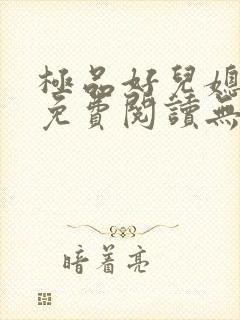 極品好兒媳
免費閱讀無
暗着亮